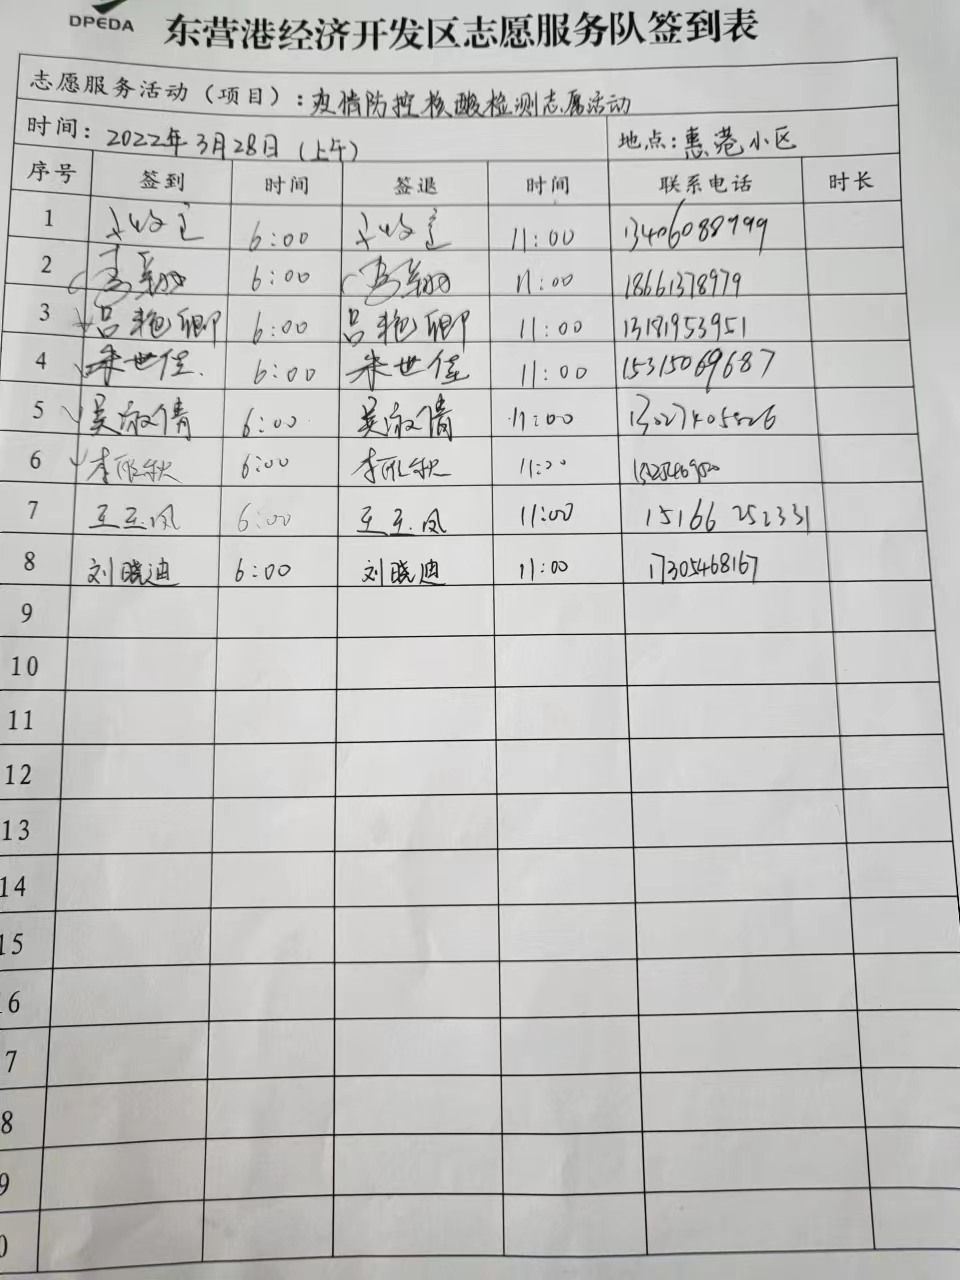 DPEDA
东营港经济开发区志愿服务队签到表
志愿服务活动（项目）：疫情防控核酸检测志愿活动
时间：2022年3月28日（上午） 地点：惠港小区
序号 签到 时间 签退 时间 联系电话 时长
1 6:00 11:00 13406088999
2 6:00 11:00 18661378979
3 吕艳卿 6:00 吕艳卿 11:00 13181953951
4 朱世佳 6:00 朱世佳 11:00 15315069687
5 吴淑倩 6:00 吴淑倩 11:00
6 6:00 11:00
7 王玉凤 6:00 王玉凤 11:00 15166252331
8 刘晓迪 6:00 刘晓迪 11:00 17305468167
9
10
11
12
13
14
15
16
7
8
9
0